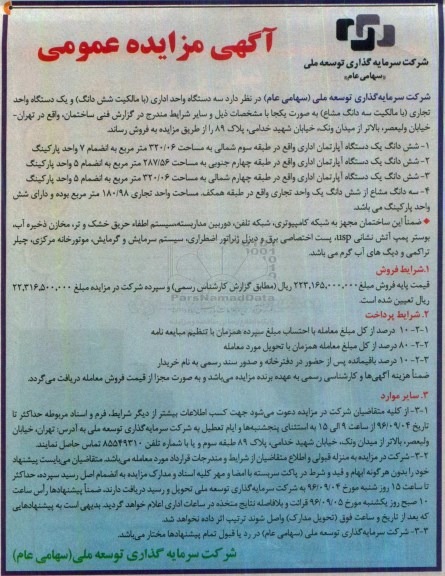 آگهی مزایده عمومی
شرکت سرمایه گذاری توسعه ملی
«سهامی عام»
شرکت سرمایه‌گذاری توسعه ملی (سهامی عام) در نظر دارد سه دستگاه واحد اداری (با مالکیت شش دانگ) و یک دستگاه واحد
تجاری (با مالکیت سه دانگ مشاع) به صورت یکجا با مشخصات ذیل و سایر شرایط مندرج در گزارش فنی ساختمان، واقع در تهران-
خیابان ولیعصر، بالاتر از میدان ونک، خیابان شهید خدامی، پلاک ۸۹ را از طریق مزایده به فروش رساند.
۱- شش دانگ یک دستگاه آپارتمان اداری واقع در طبقه سوم شمالی به مساحت ۳۲۰/۰۶ متر مربع به انضمام ۷ واحد پارکینگ
۲- شش دانگ یک دستگاه آپارتمان اداری واقع در طبقه چهارم جنوبی به مساحت ۲۸۷/۵۶ متر مربع به انضمام ۵ واحد پارکینگ
۳- شش دانگ یک دستگاه آپارتمان اداری واقع در طبقه چهارم شمالی به مساحت ۳۲۰/۰۶ متر مربع به انضمام ۵ واحد پارکینگ
۴- سه دانگ مشاع از شش دانگ یک واحد تجاری واقع در طبقه همکف. مساحت واحد تجاری ۱۸۰/۹۸ متر مربع بوده و دارای شش
واحد پارکینگ می باشد.
◆ ضمناً این ساختمان مجهز به شبکه کامپیوتری، شبکه تلفن، دوربین مداربسته، سیستم اطفاء حریق خشک و تر، مخازن ذخیره آب،
بوستر پمپ آتش نشانی، usp، پست اختصاصی برق و دیزل ژنراتور اضطراری، سیستم سرمایش و گرمایش، موتورخانه مرکزی، چیلر
تراکمی و دیگ های آب گرم می باشد.
۱.شرایط فروش
قیمت پایه فروش مبلغ ۲۲۳,۱۶۵,۰۰۰,۰۰۰ ریال (مطابق گزارش کارشناس رسمی) و سپرده شرکت در مزایده مبلغ ۲۲,۳۱۶,۵۰۰,۰۰۰
ریال تعیین شده است.
۲. شرایط پرداخت
۲-۱- ۱۰ درصد از کل مبلغ معامله با احتساب مبلغ سپرده همزمان با تنظیم مبایعه نامه
۲-۲- ۸۰ درصد از کل مبلغ معامله همزمان با تحویل مورد معامله
۲-۳- ۱۰ درصد باقیمانده پس از حضور در دفترخانه و صدور سند رسمی به نام خریدار
ضمناً هزینه آگهی‌ها و کارشناسی رسمی به عهده برنده مزایده می‌باشد و به صورت مجزا از قیمت فروش معامله دریافت می‌گردد.
۳. سایر موارد
۳-۱- از کلیه متقاضیان شرکت در مزایده دعوت می‌شود جهت کسب اطلاعات بیشتر از دیگر شرایط، فرم و اسناد مربوطه حداکثر تا
تاریخ ۹۶/۰۹/۰۴ از ساعت ۹ الی ۱۵ به استثنای پنجشنبه‌ها و ایام تعطیل به شرکت سرمایه گذاری توسعه ملی به آدرس: تهران، خیابان
ولیعصر، بالاتر از میدان ونک، خیابان شهید خدامی، پلاک ۸۹ طبقه سوم و یا با شماره تلفن ۸۵۵۴۹۳۱۰ تماس حاصل نمایند.
۳-۲- شرکت در مزایده به منزله قبولی و اطلاع متقاضیان از شرایط و مندرجات قرارداد مورد معامله می‌باشد. متقاضیان می‌بایست پیشنهاد
خود را بدون هر گونه ابهام و قید و شرط در پاکت سربسته با امضا و مهر کلیه اسناد و مدارک مزایده به انضمام اصل رسید سپرده، حداکثر
تا ساعت ۱۵ روز شنبه مورخ ۹۶/۰۹/۰۴ به شرکت سرمایه‌گذاری توسعه ملی تحویل و رسید دریافت دارند، ضمناً پیشنهادها رأس ساعت
۱۰ صبح روز یکشنبه مورخ ۹۶/۰۹/۰۵ قرائت و بلافاصله نتایج متخذه در ساعات اداری اعلام خواهد گردید. بدیهی است به پیشنهادهایی
که بعد از تاریخ و ساعت فوق (تحویل مدارک) واصل شوند ترتیب اثر داده نخواهد شد.
۳-۳- شرکت سرمایه‌گذاری توسعه ملی (سهامی عام) در رد یا قبول تمام پیشنهادها مختار می‌باشد.
شرکت سرمایه گذاری توسعه ملی(سهامی عام)